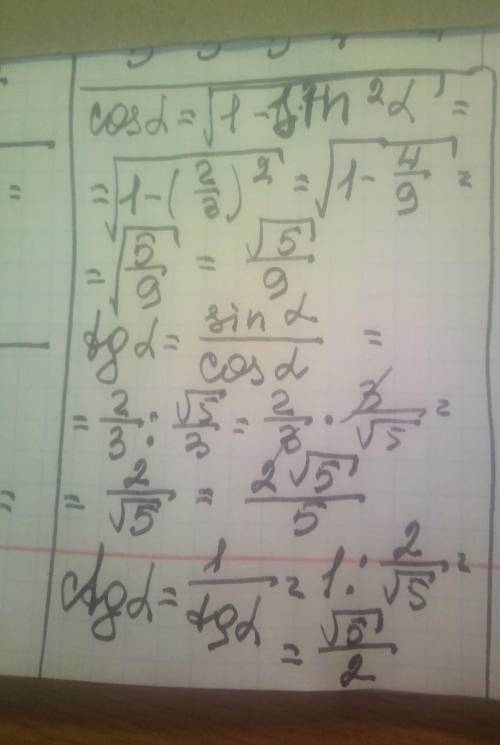 cosα = √(1 - sin²α) =
= √(1 - (2/3)²) = √(1 - 4/9) =
= √(5/9) = √5/9
tg α = sin α / cos α =
= 2/3 : √5/3 = 2/3 · 3/√5 =
= 2/√5 = 2√5/5
ctg α = 1/tg α = 1 : 2/√5 =
= √5/2